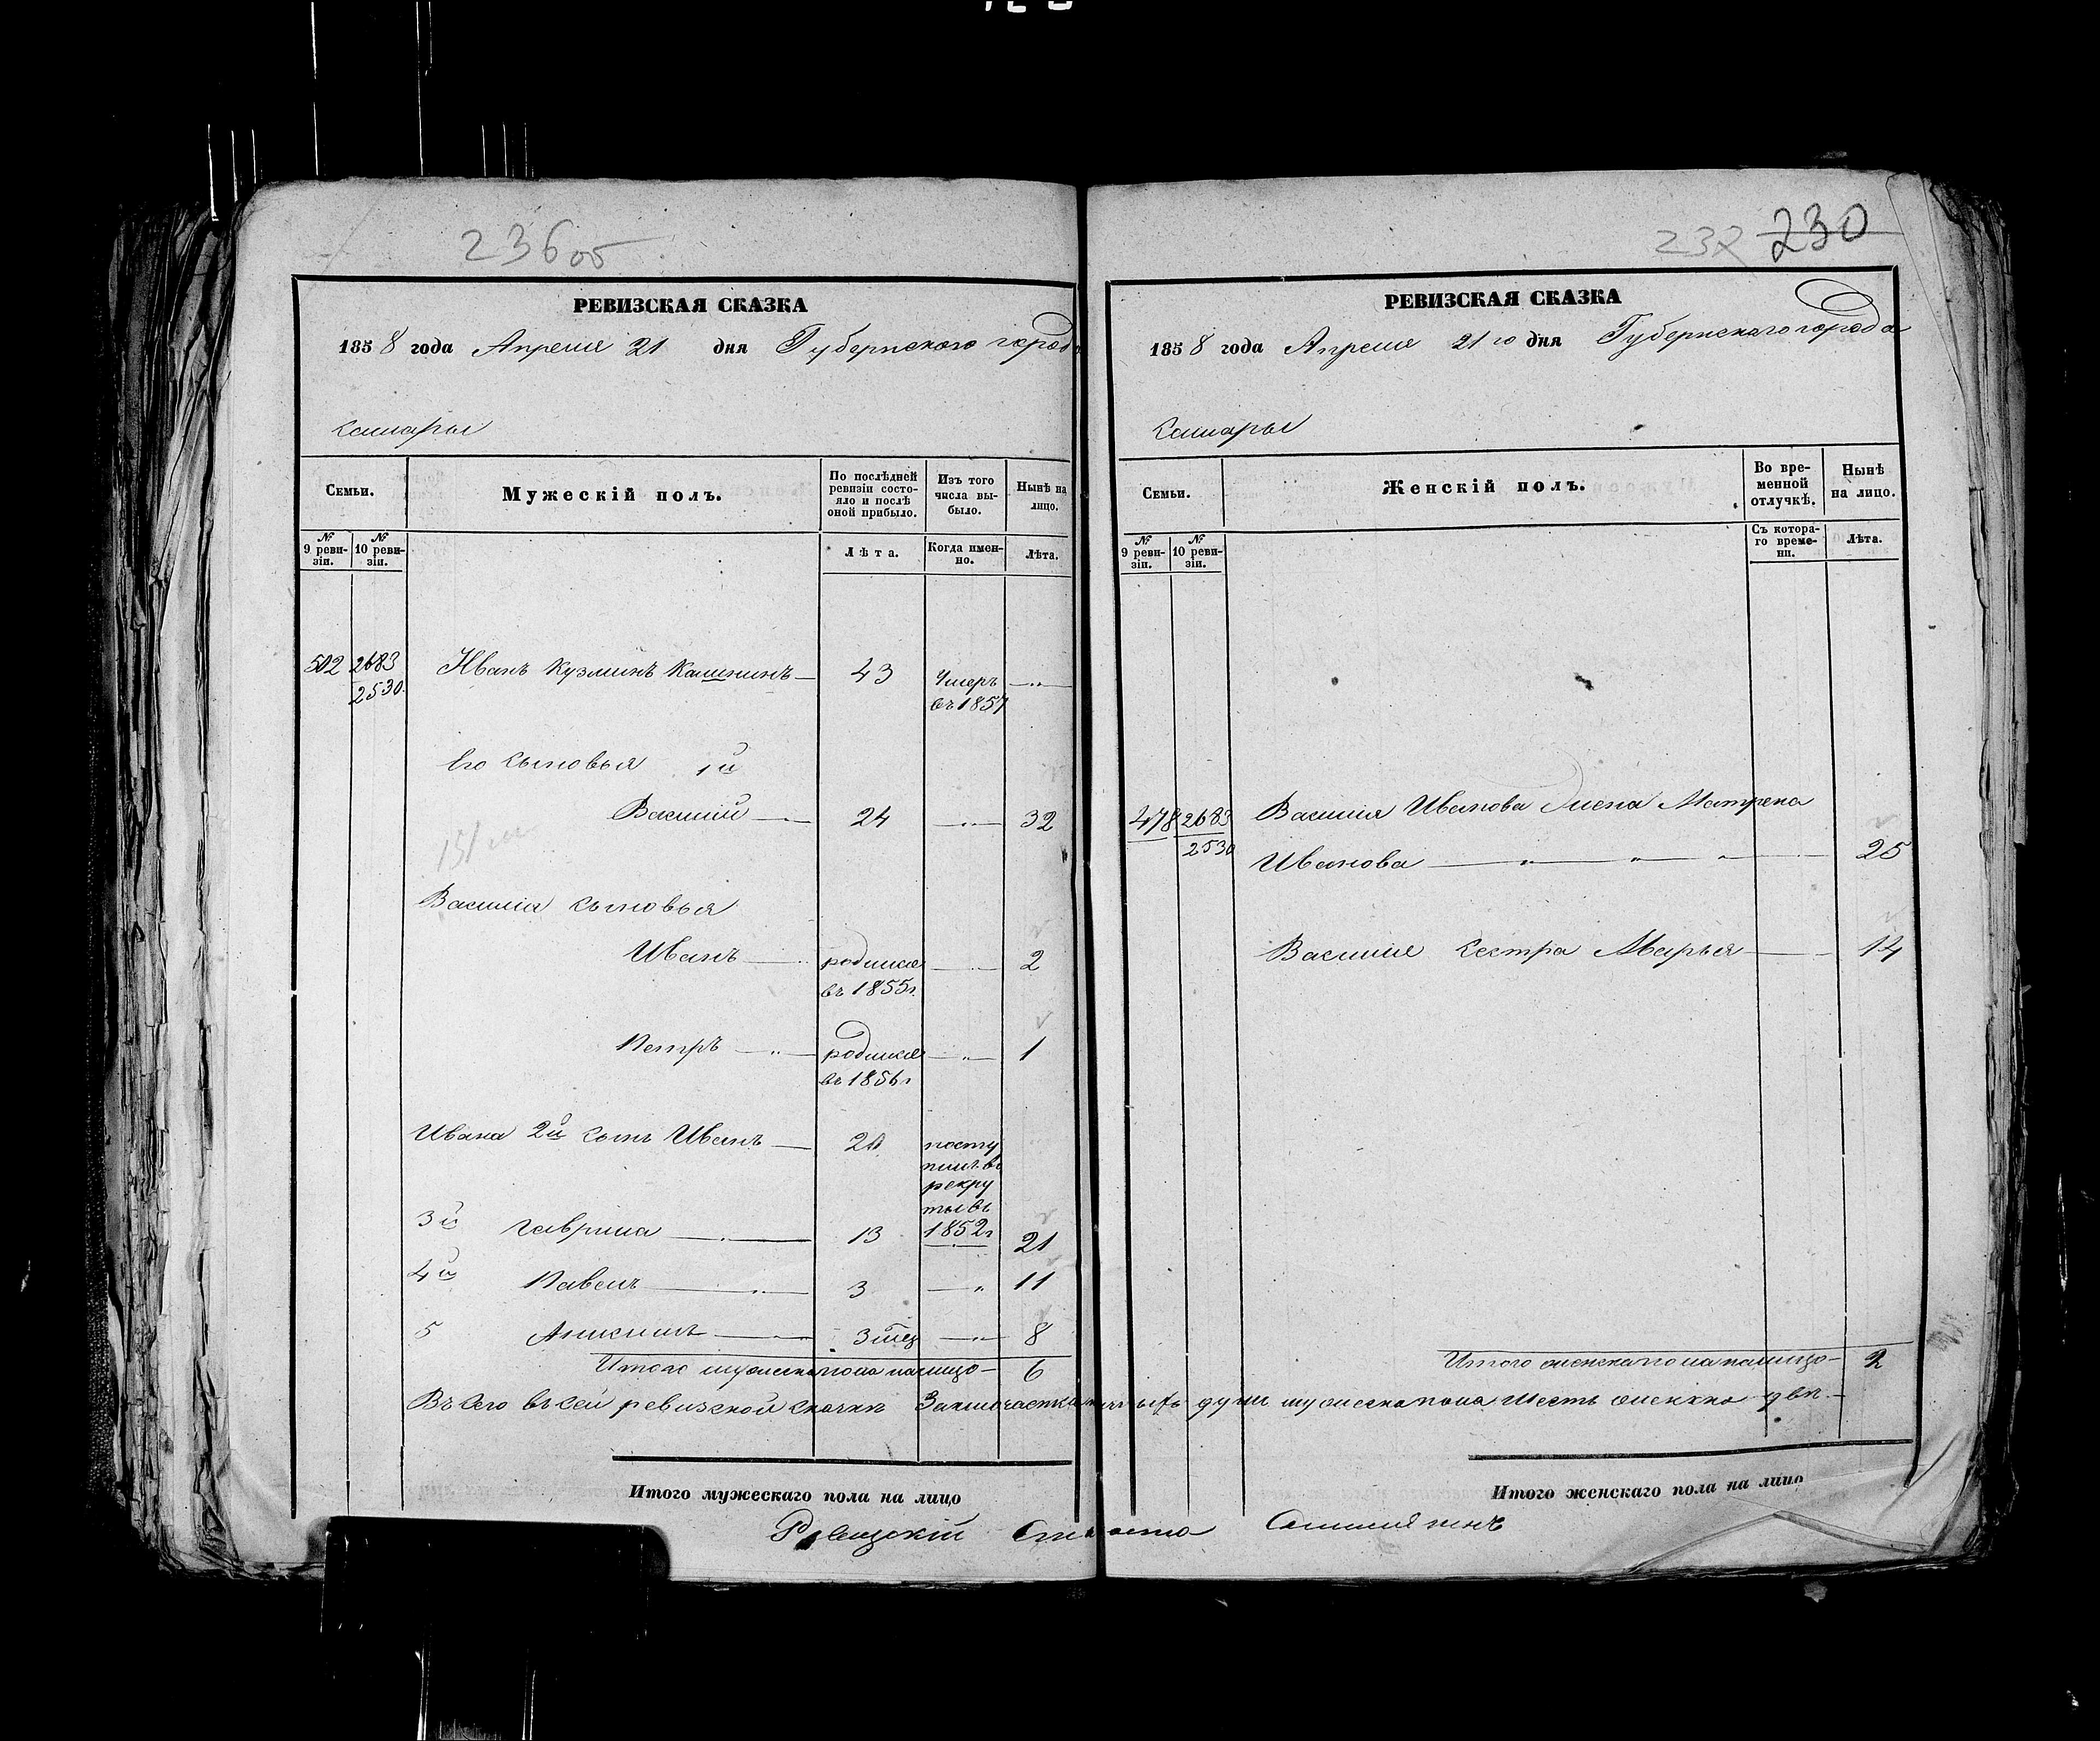 236об
РЕВИЗСКАЯ СКАЗКА
1858 года Апреля 21 дня Губернского города
Самары
Семьи.
Мужескій полъ.
По послѣдней ревизіи состояло и послѣ оной прибыло.
Изъ того числа выбыло.
Нынѣ на лицо.
№ 9 ревизіи.
№ 10 ревизіи.
Лѣта.
Когда именно.
Лѣта.
502 2683 Иванъ Кузминъ Кашинъ 43 Умеръ
2530 въ 1857
Его сыновья 1й
Василий 24 32
Василія сыновья
Иванъ родился 2
въ 1855г.
Петръ родился 1
въ 1856г
Ивана 2й сынъ Иванъ 20 посту
пилъ въ
рекру
ты въ
1852г
3й Гаврила 13 21
4й Павелъ 3 11
5 3 мец 8
Итого мужеска пола налицо 6
Всего въ сей ревизской скаскѣ душъ мужеска пола шесть женска двѣ
Итого мужескаго пола на лицо
Староста
232 230
РЕВИЗСКАЯ СКАЗКА
1858 года Апреля 21го дня Губернскаго города
Самары
Семьи.
Женскій полъ.
Во временной отлучкѣ.
Нынѣ на лицо.
№ 9 ревизіи.
№ 10 ревизіи.
Съ котораго времени.
Лѣта.
478 2683 Василия Иванова жена Матрена
2530 Иванова 25
Василия сестра Марья 14
Итого женска пола налицо 2
Итого женскаго пола на лицо